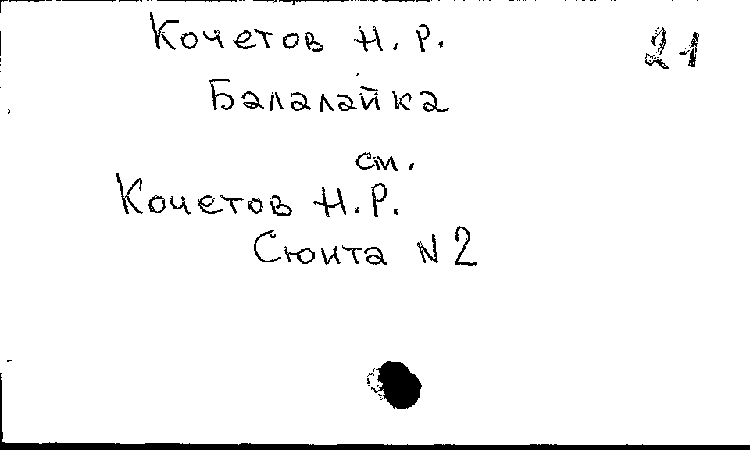 Кочетов Н. Р.
21
Балалайка
см.
Кочетов Н.Р.
Сюита N 2